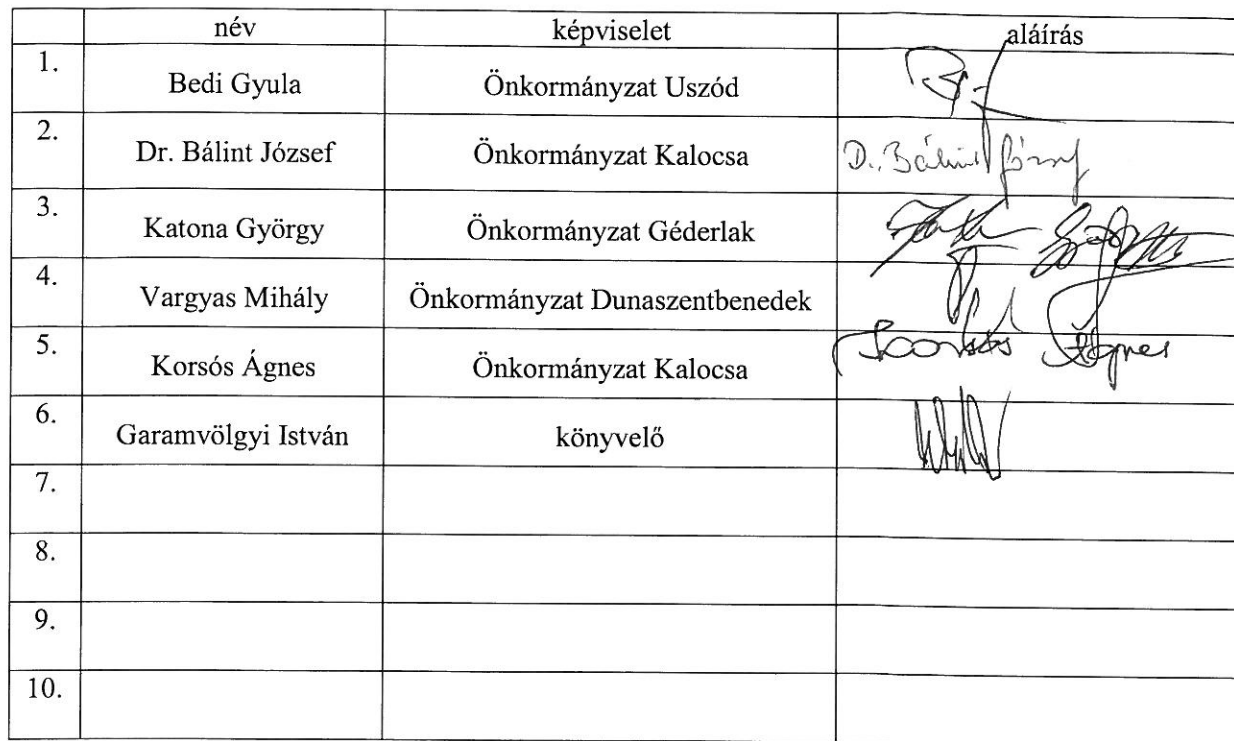 név képviselet aláírás
1. Bedi Gyula Önkormányzat Uszód
2. Dr. Bálint József Önkormányzat Kalocsa D. Bálint József
3. Katona György Önkormányzat Géderlak
4. Vargyas Mihály Önkormányzat Dunaszentbenedek
5. Korsós Ágnes Önkormányzat Kalocsa Korsós Ágnes
6. Garamvölgyi István könyvelő
7.
8.
9.
10.